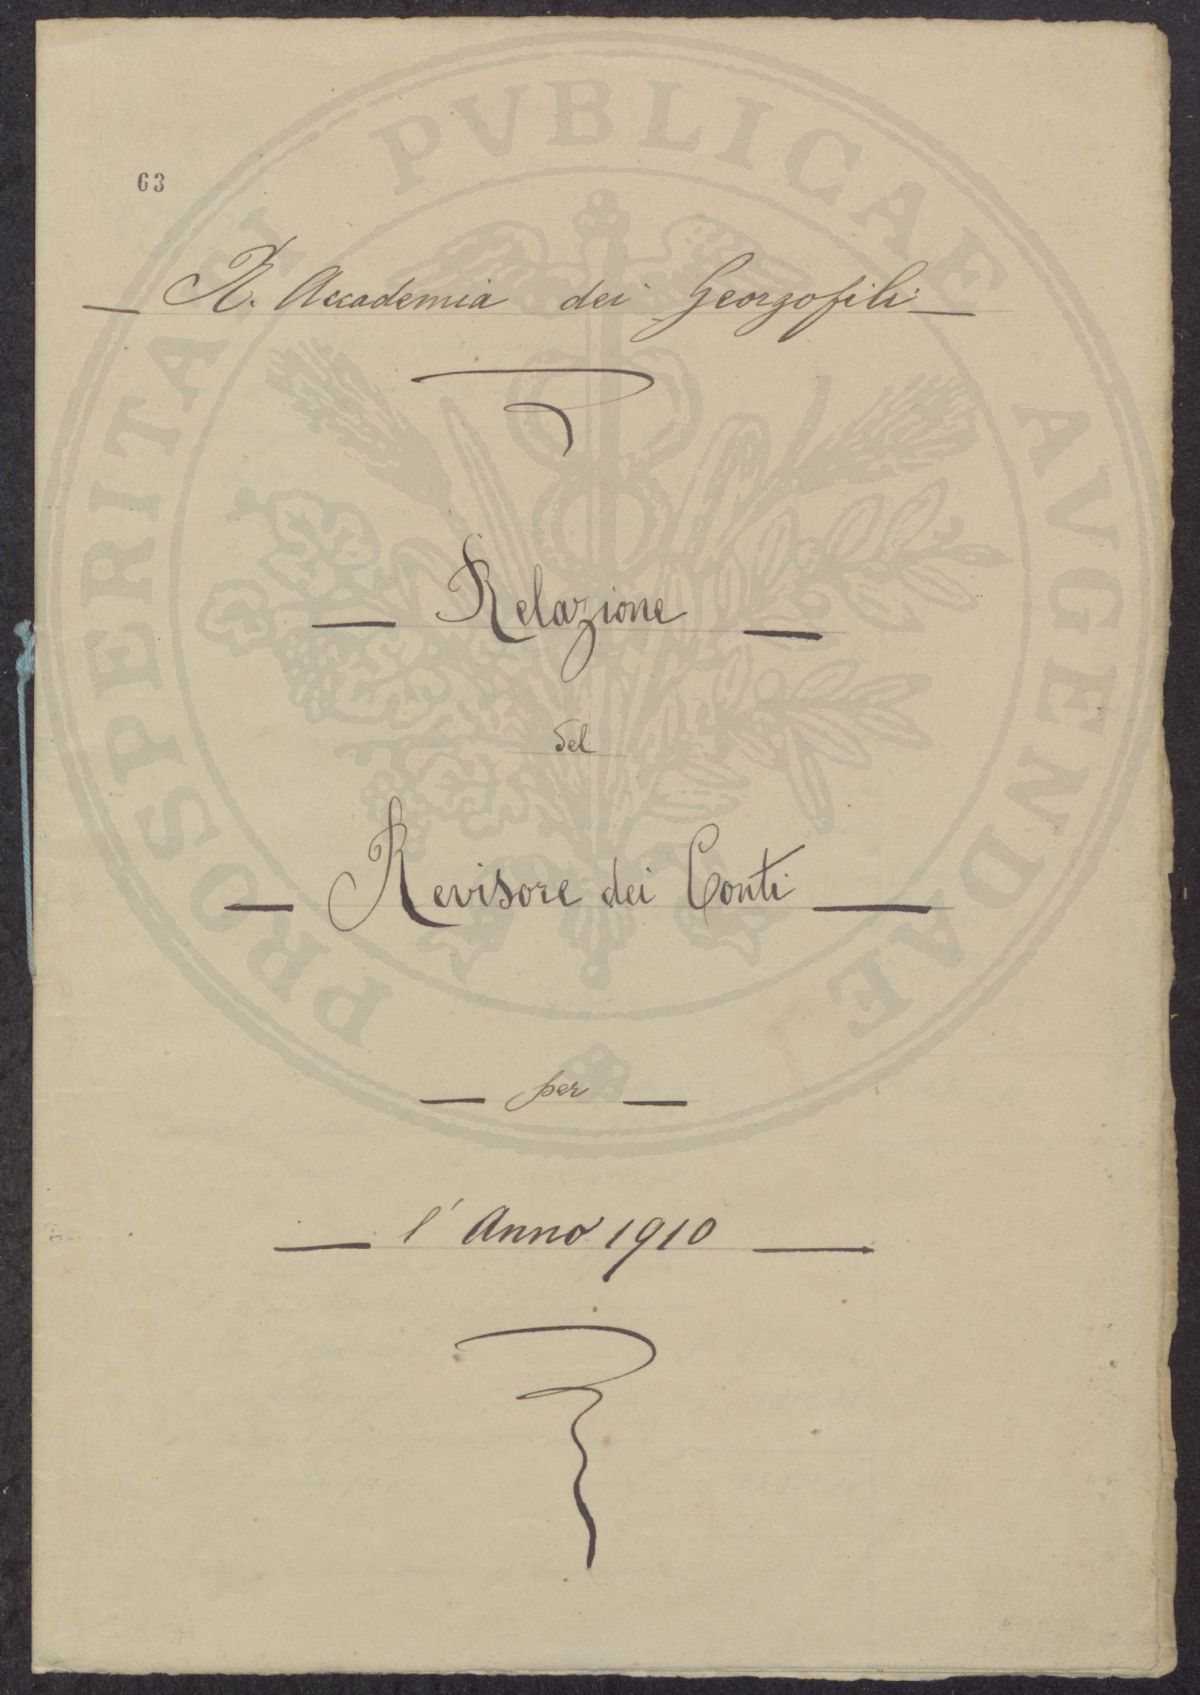 63
R. Accademia dei Georgofili
Relazione
del
Revisore dei Conti
per
l'Anno 1910
PROSPERITATI PVBLICAE AVGENDAE